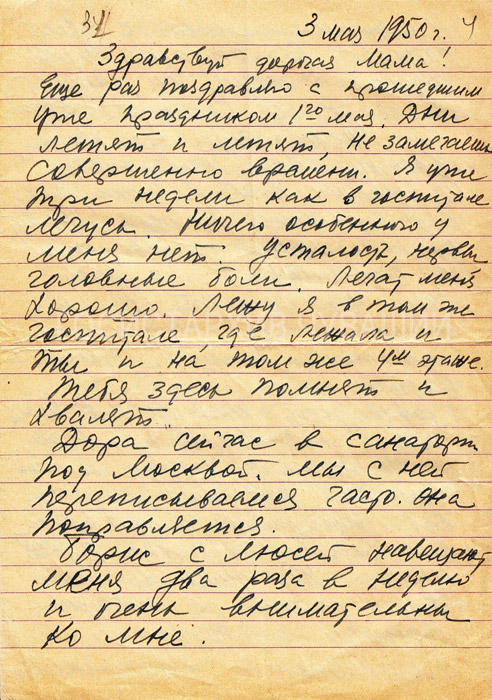 3 мая 1950 г.
Здравствуй дорогая Мама!
Еще раз поздравляю с прошедшим
уже праздником 1го мая. Дни
летят и летят, не замечаешь
совершенно времени. Я уже
три недели как в госпитале
лечусь. Ничего особенного у
меня нет. Усталость, нервы
головные боли. Лечат меня
хорошо. Лежу я в том же
госпитале, где лежала и
ты и на том же 4м этаже.
Тебя здесь помнят и
хвалят.
Дора сейчас в санатории
под Москвой. Мы с ней
переписываемся часто. Она
поправляется.
Борис с Люсей навещают
меня два раза в неделю
и очень внимательны
ко мне.